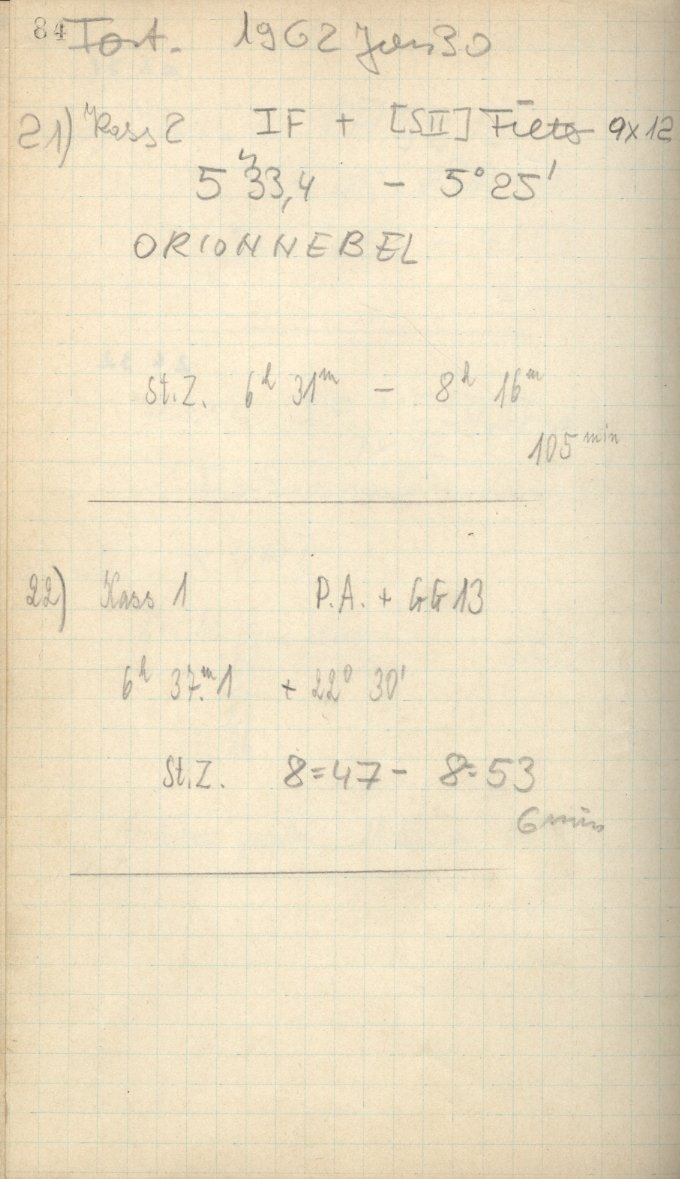 84 Fort. 1962 Jan 30
21) Kass 2 IF + [SII] Filter 9x12
5h 33,4 - 5° 25'
ORIONNEBEL
St.Z. 6h 31m - 8h 16m
105 min
22) Kass 1 P.A. + GG 13
6h 37.m1 + 22° 30'
St.Z. 8=47 - 8=53
6 min